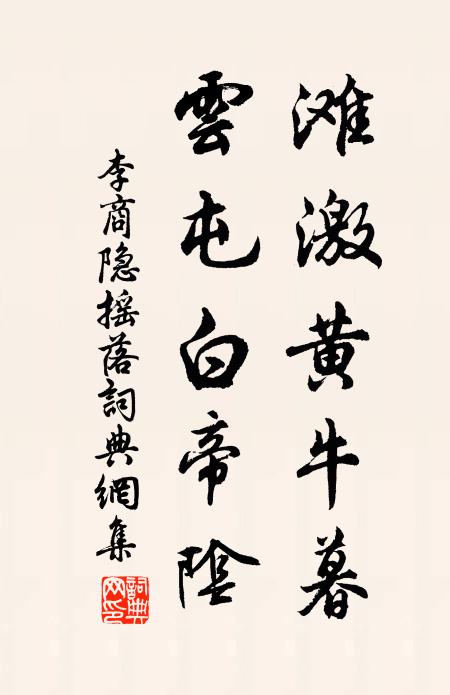 滩激黄牛暮
雲屯白帝陰
李商隐摇落詞典網集
詞典网印